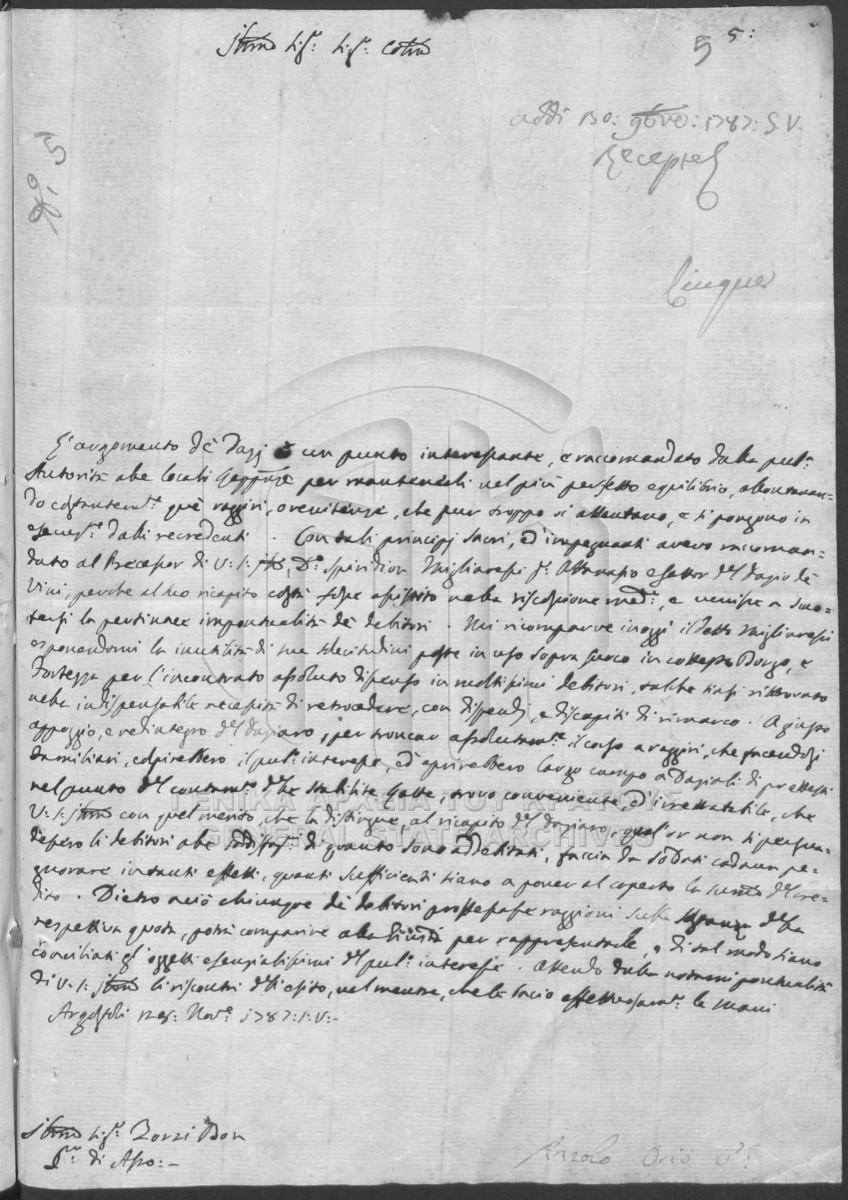 Sig.r Sig.r
5 5:
N.o 5
addi 130: 9bre: 1787: S.V.
Recepte
Cinque
L'argomento de Dazj è un punto interessante, e raccomandato dalla pub.a
Autorità alle locali per mantenerli nel più perfetto equilibrio, allontanan=
do costantem.te que raggiri, o renitenze, che pur troppo si attentano, e si pongono in
esecuz.e dalli recredenti. Con tali principj sacri, ed impegnanti avevo raccoman=
dato al Precessor di V: S: D.n Spiridion Migliaressi q. Attanasio esattor del dazio de
Vini, perche al suo ricapito fosse assistito nella riscossione mad.a, e venisse a
la pertinace impontualità de debitori. Mi ricomparve in oggi il detto Migliaressi
esponendomi la inutilità di sue solecitudini poste in uso sopra luoco in Borgo, e
Fortezza per l'incontrato assoluto dispenso in moltissimi debitori, talche siasi ritrovato
nella indispensabile necessità di retrocedere, con dispendj, e discapiti di rimarco. A giusto
appoggio, e redintegro del daziaro, per troncar assolutam.te il corso a raggiri, che facendosi
familiari, colpirebbero il pub.o interesse, ed aprirebbero largo campo a Daziali di pretesti
nel punto del contam.to delle stabilite Ratte, trovo conveniente, ed irrestatibile, che
V: S: con quel merito, che la distingue, al ricapito del daziaro, qual'or non si persua=
dessero li debitori alla sodisfaz.e di quanto sono addebitati, faccia da Soldati cadaun pe=
gnorare in tanti effetti, quanti sufficienti siano a poner al coperto la summa del cre=
dito. Dietro a ciò chiunque de debitori professasse raggioni sulla della
respettiva quota, potrà comparire alla Giustitia per rappresentarle, e di tal modo siano
conciliati gl'oggetti esenzialissimi del pub.o interesse. Attendo dalla notami pontualità
di V: S: li riscontri dell'esito, nel mentre, che le bacio affettuosam.te le mani
Argostoli 129: Nov.e 1787: S:V:-
Sig.r Zorzi Bon
di Asso:-
Anzolo Orio